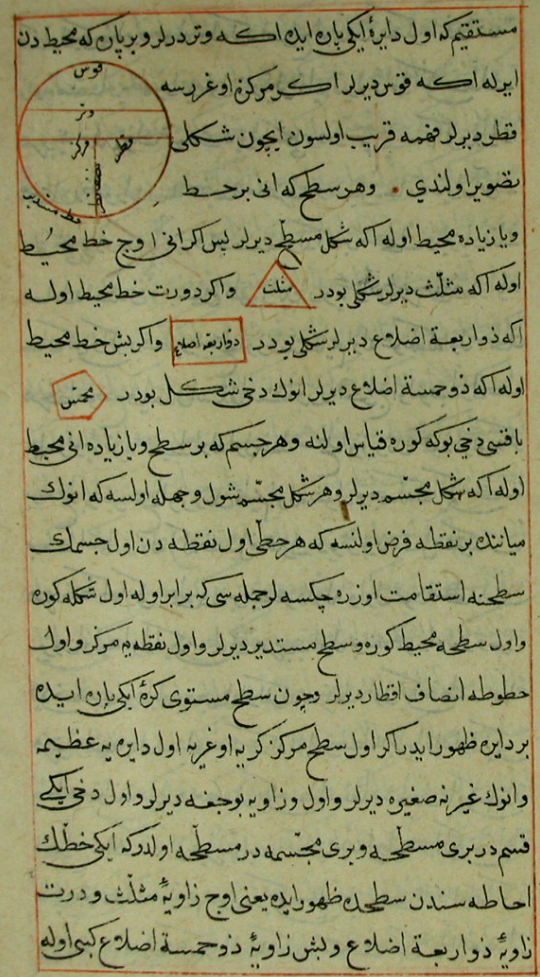 مستقیم که اول دایرهٔ ایکی پاره ایده اکه وتر دیرلر و بر پاره که محیط دن
ایرله اکه قوس دیرلر اکر مرکزه اوغررسه
قطر دیرلر فهمه قریب اولسون ایچون شکلی
تصویر اولندي . وهر سطح که انی بر خط
قوس
وتر
قطر
مرکز
نصف قطر
خط مستدیر
ویا زیاده محیط اوله اکه شکل مسطّح دیرلر پس اکر انی اوچ خط محیط
اوله اکه مثلّث دیرلر شکلی بودر مثلث واکر دورت خط محیط اوله
اکه ذواربعة اضلاع دیرلر شکلی بودر ذواربعة اضلاع واکر بش خط محیط
اوله اکه ذوخمسة اضلاع دیرلر انوك دخی شکل بودر مخمّس
باقیسی دخی بوکه کوره قیاس اولنه وهر جسم که بر سطح ویا زیاده انی محیط
اوله اکه شکل مجسّم دیرلر وهر شکل مجسّم شول وجهله اولسه که انوك
میاننده بر نقطه فرض اولنسه که هر خطّی اول نقطه دن اول جسمك
سطحنه استقامت اوزره چکسه لر جمله سی که برابر اوله اول شکله کوره
واول سطحه محیط کوره وسطح مستدیر دیرلر واول نقطه یه مرکز واول
خطوطه انصاف اقطار دیرلر وچون سطح مستوی کرهٔ ایکی پاره ایده
بر دایره ظهور ایدر اکر اول سطح مرکز کریه اوغریه اول دایره یه عظیمه
وانوك غیرنه صغیره دیرلر واول وزاویه بوجغه دیرلر واول دخی ایکی
قسم در بری مسطّحه وبری مجسّمه در مسطّحه اولدر که ایکی خطّك
احاطه سندن سطحده ظهور ایده یعنی اوچ زاویهٔ مثلّث ودرت
زاویهٔ ذواربعة اضلاع وبش زاویهٔ ذوخمسة اضلاع کبی اوله